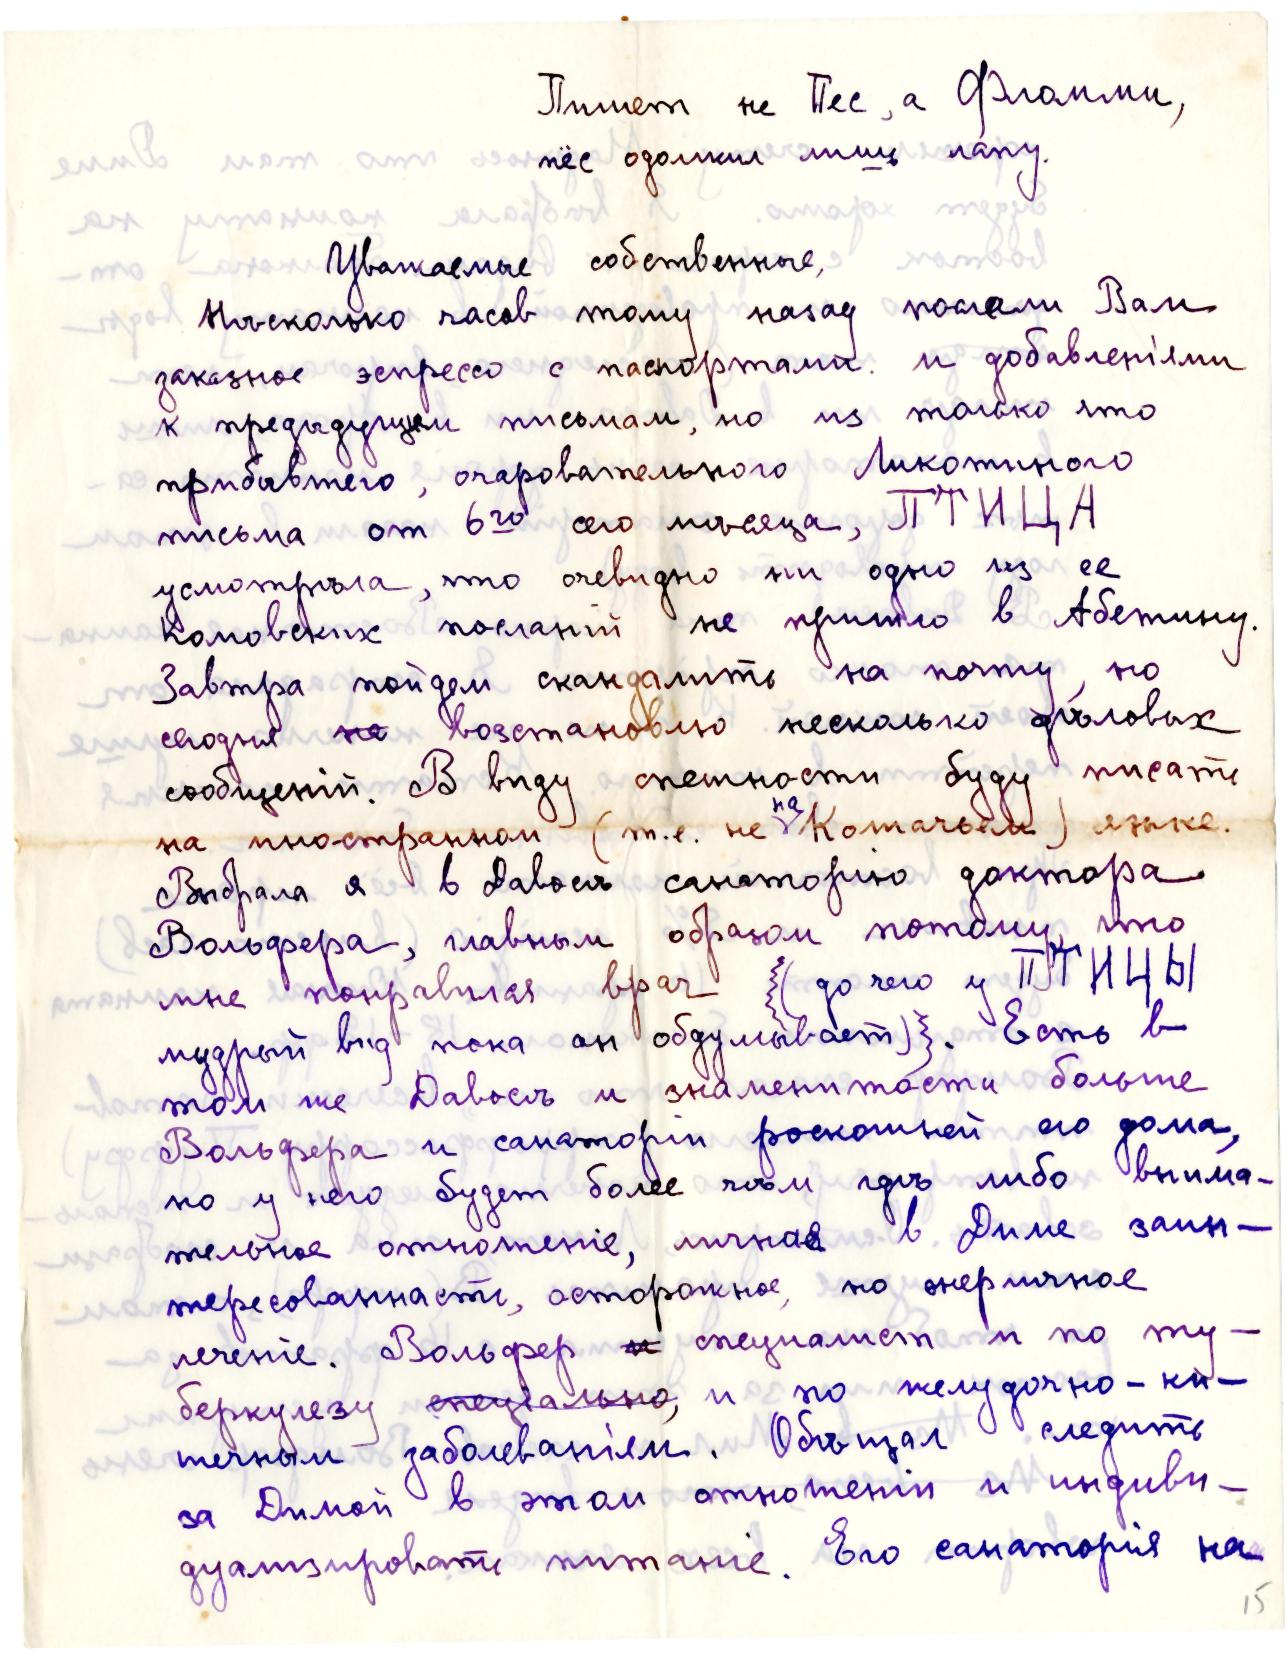 Пишет не Пес, а Фламми,
пёс одолжил лишь лапу.
Уважаемые собственные,
Нѣсколько часов тому назад послали Вам
заказное эспрессо с паспортами и добавленіями
к предыдущим письмам, но из только что
прибывшего, очаровательного Ликотиного
письма от 6го сего мѣсяца, ПТИЦА
усмотрѣла, что очевидно ни одно из ее
Комовских посланій не пришло в Абетину.
Завтра пойдем скандалить на почту, но
сегодня не возстановлю несколько дѣловых
сообщеній. В виду спешности буду писать
на иностранном (т.е. не на Котачьем) языке.
Выбрала я в Давосѣ санаторію доктора
Вольфера, главным образом потому, что
мне понравился врач {(до чего у ПТИЦЫ
мудрый вид пока он обдумывает)}. Есть в
том же Давосѣ и знаменитости больше
Вольфера и санаторіи роскошней его дома,
но у него будет более чѣм гдѣ либо внима-
тельное отношеніе, личная в Диме заин-
тересованность, осторожное, но энергичное
леченіе. Вольфер и специалист и по ту-
беркулезу спеціально, и по желудочно-ки-
шечным заболеваніям. Обѣщал следить
за Димой в этом отношеніи и индиви-
дуализировать питаніе. Его санаторія на
15